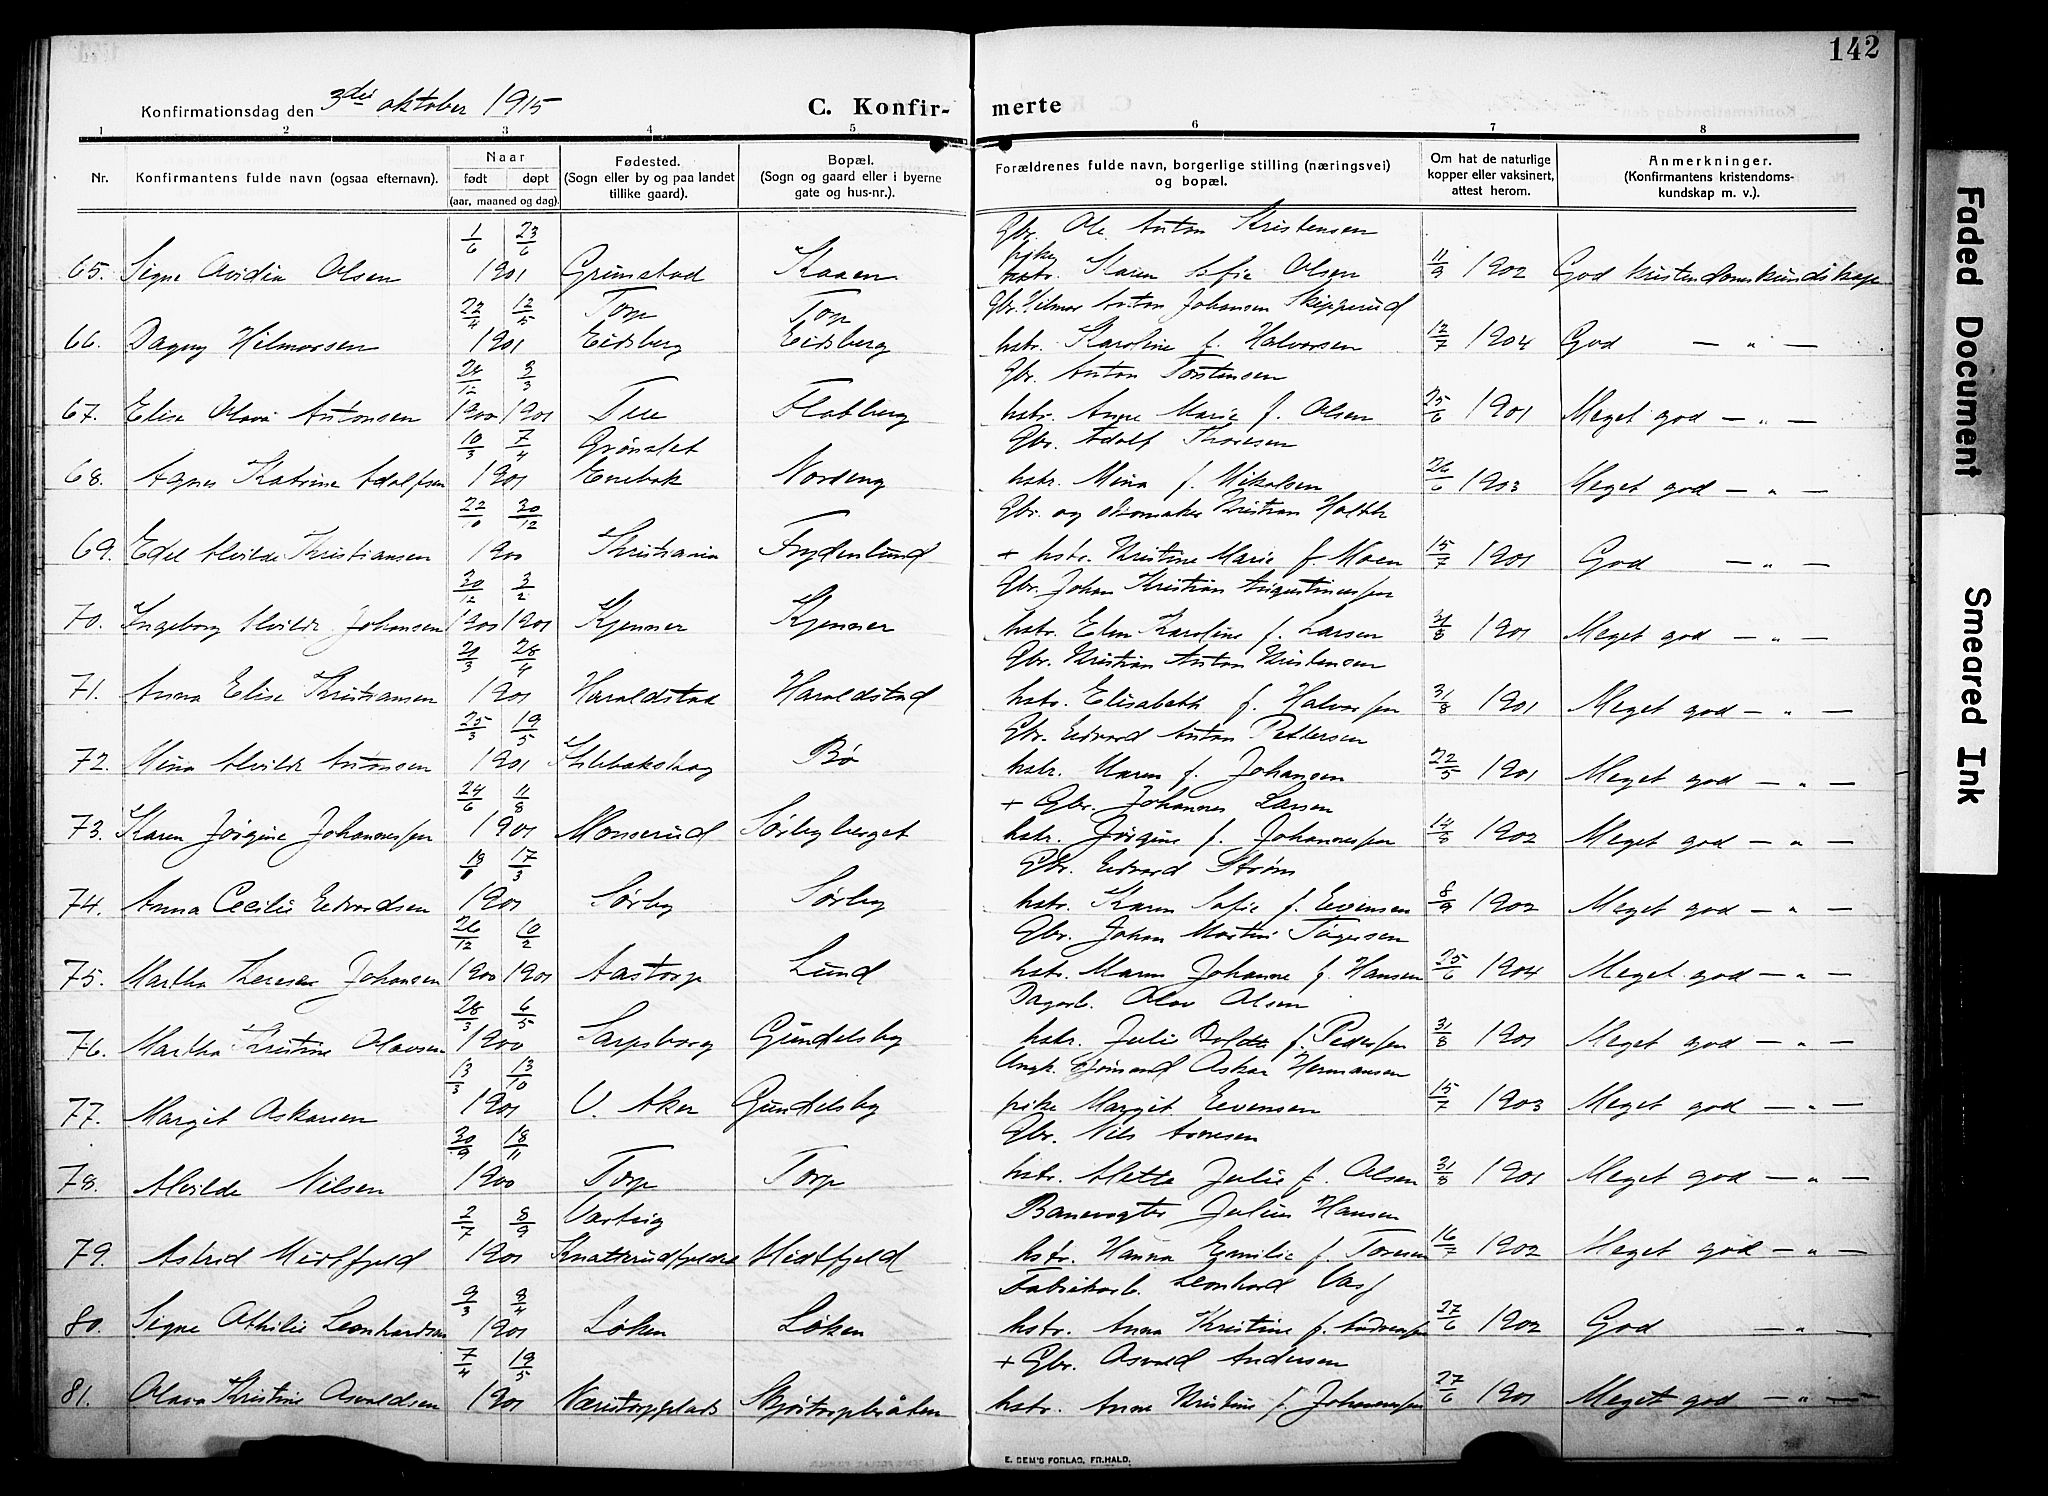 142
Konfirmationsdag den 3die oktober 1915
C. Konfirmerte
1 2 3 4 5 6 7 8
Nr. Konfirmantens fulde navn (ogsaa efternavn). Naar født døpt (aar, maaned og dag). Fødested. (Sogn eller by og paa landet tillike gaard). Bopæl. (Sogn og gaard eller i byerne gate og hus-nr.). Forældrenes fulde navn, borgerlige stilling (næringsvei) og bopæl. Om hat de naturlige kopper eller vaksinert, attest herom. Anmerkninger. (Konfirmantens kristendomskundskap m. v.).
1/6 23/6 Gbr. Ole Anton Kristensen
65. Signe Ovidia Olsen 1901 Grimstad Kaaen pike Karen Sofie Olsen 11/9 1902 God kristendomskundskap
22/4 12/5 Torp Torp Gbr. Hilmar Anton Johansen Skipperud
66. Dagny Hilmarsen 1901 Eidsberg Eidsberg hstr. Karoline f. Halvorsen 12/7 1904 God — " —
24/12 3/3 Gbr. Anton Torstensen
67. Elise Olava Antonsen 1900 1901 Flatberg hstr. Anne Marie f. Olsen 25/6 1901 Meget god — " —
10/3 7/4 Gbr. Adolf Thoresen
68. Agnes Katrine Adolfsen 1901 Enebak Nordeng hstr. Mina f. Mikalsen 26/6 1903 Meget god — " —
22/10 30/12 Gbr. og skomaker Kristian Holth
69. Edel Alvilde Kristiansen 1900 Kristiania Frydenlund + hstr. Kristine Marie f. Moen 15/7 1901 God — " —
30/12 3/2 Gbr. Johan Kristian Augustinussen
70. Ingeborg Alvilde Johansen 1900 1901 Kjenner Kjenner hstr. Elen Karoline f. Larsen 31/8 1901 Meget god — " —
20/3 28/4 Gbr. Kristian Anton Kristensen
71. Anna Elise Kristiansen 1901 Haraldstad Haraldstad hstr. Elisabeth f. Halvorsen 31/8 1901 Meget god — " —
25/3 19/5 Gbr. Edvard Anton Pettersen
72. Mina Alvilde Antonsen 1901 Bø hstr. Maren f. Johansen 22/5 1901 Meget god — " —
24/6 11/8 + Gbr. Johannes Larsen
73. Karen Jørgine Johannessen 1901 Monserud Sørbyberget hstr. Jørgine f. Johannessen 14/8 1902 Meget god — " —
17/3 Gbr. Edvard Strøm
74. Anna Cecilie Edvardsen 1901 Sørby Sørby hstr. Karen Sofie f. Evensen 8/9 1902 Meget god — " —
26/12 10/2 Gbr. Johan Martin Torgersen
75. Martha Therese Johansen 1900 1901 Aastorp Lund hstr. Maren Johanne f. Hansen 25/6 1904 Meget god — " —
28/3 6/5 Dagarb. Olav Olsen
76. Martha Kristine Olavsen 1900 Sarpsborg Gundelsby hstr. Julie f. Pedersen 31/8 1901 Meget god — " —
13/3 13/10 Ungk. Sjømand Oskar Hermansen
77. Margit Oskarsen 1901 V. Aker Gundelsby pike Margit Evensen 15/7 1903 Meget god — " —
30/9 18/11 Gbr. Nils Arnesen
78. Alvilde Nilsen 1900 Torp Torp hstr. Mette Julie f. Olsen 31/8 1901 Meget god — " —
2/7 8/9 Varteig Banevogter Julius Hansen
79. Astrid Midtfjeld 1901 Knatterudfjeldet Midtfjeld hstr. Hanna Emilie f. Toresen 16/7 1902 Meget god — " —
9/3 8/4 Fabrikarb. Leonhard
80. Signe Othilie Leonhardsen 1901 Løken Løken hstr. Anna Kristine f. Andreassen 27/6 1902 God — " —
7/4 19/5 + Gbr. Osvald Andersen
81. Olava Kristine Osvaldsen 1901 Næristorpplads Skjørtorpbråten hstr. Anne Kristine f. Johannessen 27/6 1901 Meget god — " —
E. SEM'S FORLAG, FR.HALD.
Faded Document
Smeared Ink